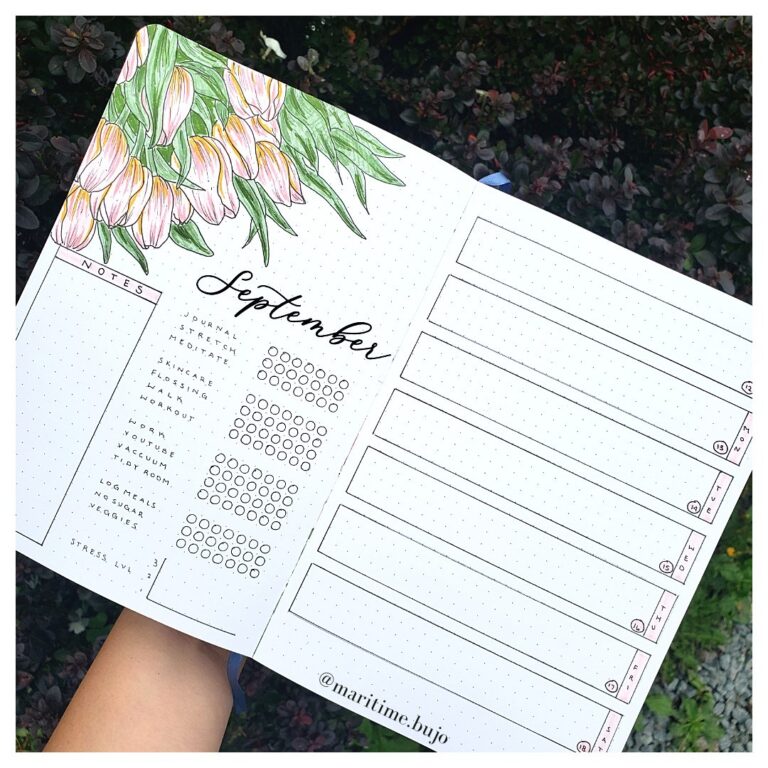 NOTES
September
JOURNAL
STRETCH
MEDITATE
SKINCARE
FLOSSING
WALK
WORKOUT
WORK
YOUTUBE
VACCUUM
TIDY ROOM
LOG MEALS
NO SUGAR
VEGGIES
STRESS LVL
3
2
1
12
13 MON
14 TUE
15 WED
16 THU
17 FRI
18 SAT
@maritime.bujo